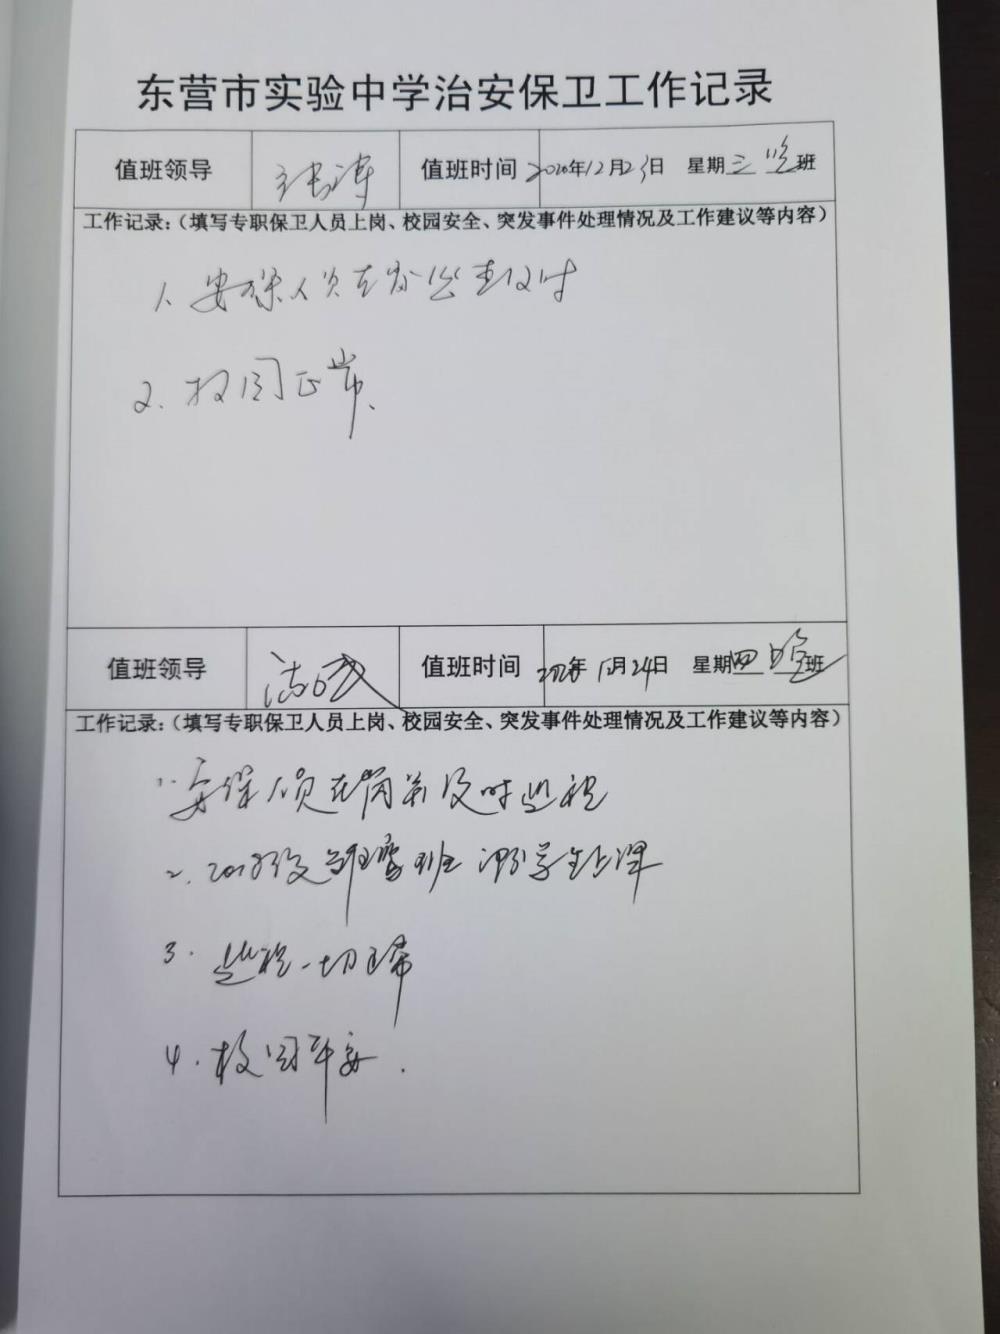 东营市实验中学治安保卫工作记录
值班领导 值班时间 2020年12月23日 星期三 晚班
工作记录:(填写专职保卫人员上岗、校园安全、突发事件处理情况及工作建议等内容)
1、安保人员在岗
2、校园正常、
值班领导 值班时间 2020年12月24日 星期四 晚班
工作记录:(填写专职保卫人员上岗、校园安全、突发事件处理情况及工作建议等内容)
1. 安保人员在岗并及时巡视
2. 班 学生上课
3. 巡视一切正常
4. 校园平安.